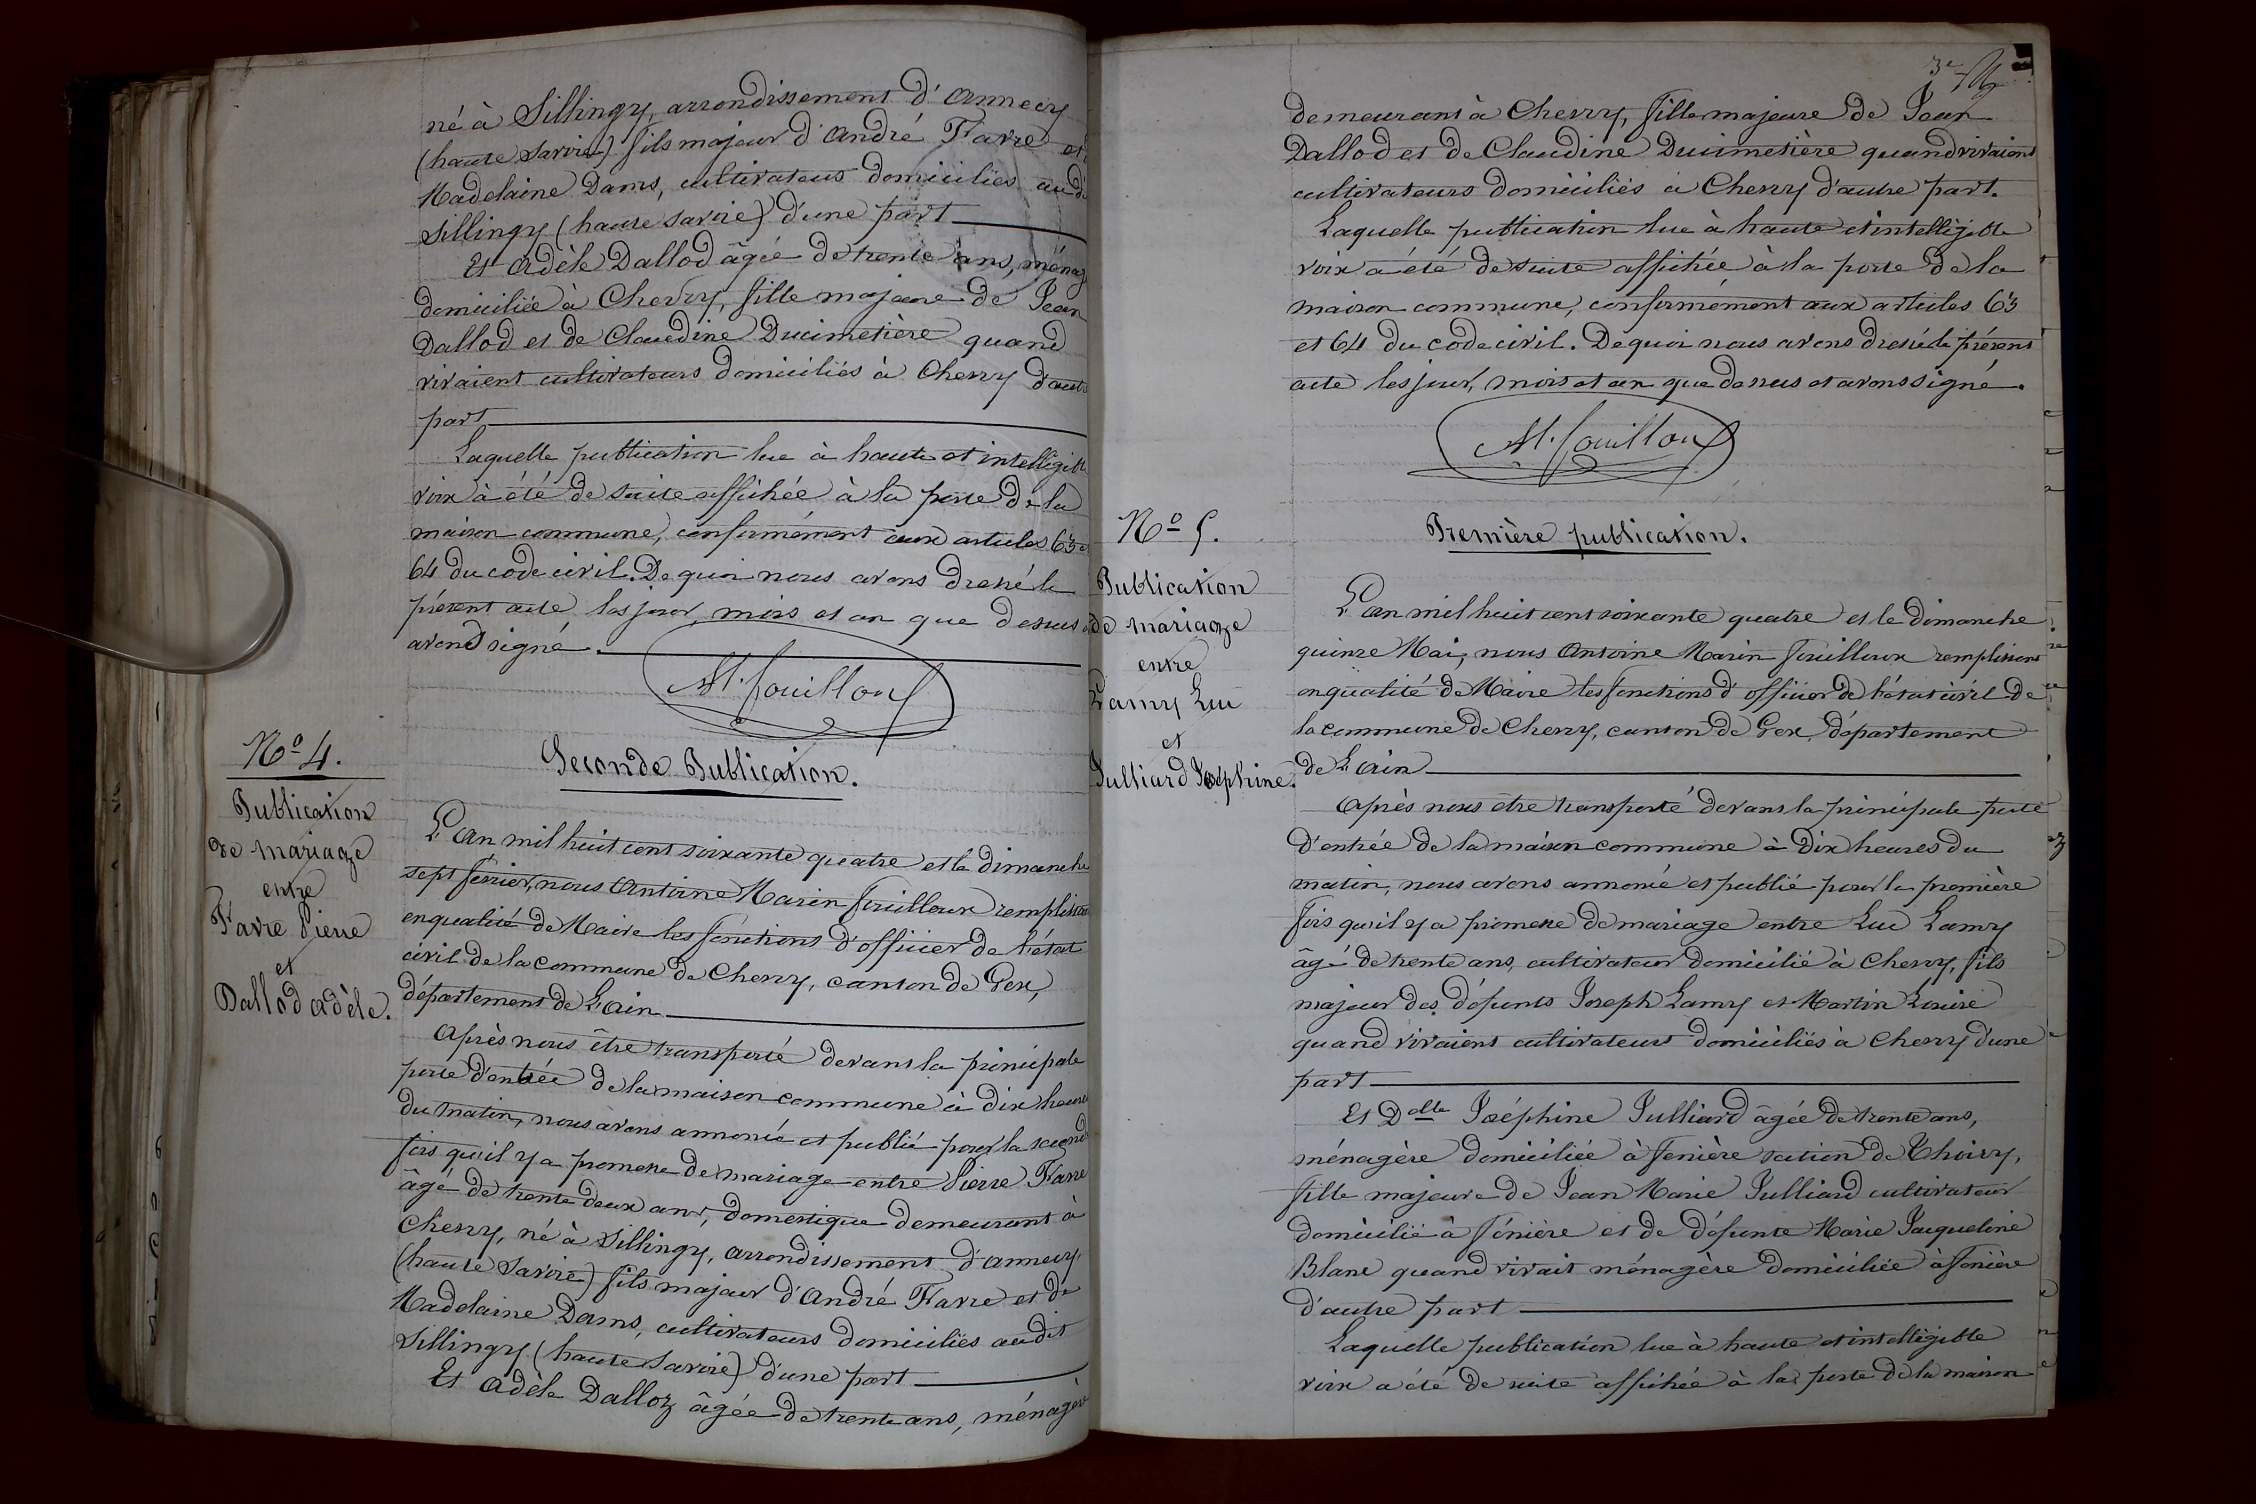 né à Sillingy, arrondissement d'Annecy
(haute Savoie) fils majeur d'André Favre et
Madelaine Dams, cultivateurs domiciliés audi
Sillingy (haute Savoie) d'une part
Et Adèle Dallod âgée de trente ans, ménag
domiciliée à Chevry, fille majeure de Jean
Dallod et de Claudine Ducimetière quand
vivaient cultivateurs domiciliés à Chevry d'autre
part
Laquelle publication lue à haute et intelligible
voix à été de suite affichée à la porte de la
maison commune, conformément aux articles 63 e
64 du code civil. De quoi nous avons dressé le
présent acte les jour, mois et an que dessus e
avons signé.
M. fouilloux
No 4.
Publication
de mariage
entre
Favre Pierre
et
Dallod Adèle.
Seconde Publication.
L'an mil huit cent soixante quatre et le dimanche
sept février, nous Antoine Marin fouilloux remplissant
en qualité de Maire les fonctions d'officier de l'état
civil de la commune de Chevry, canton de Gex,
département de l'Ain
Après nous être transporté devant la principale
porte d'entrée de la maison commune à dix heures
du matin, nous avons annoncé et publié pour la second
fois qu'il y a promesse de mariage entre Pierre Favre
âgé de trente deux ans, domestique demeurant à
Chevry, né à Sillingy, arrondissement d'Annecy,
(haute Savoie) fils majeur d'André Favre et de
Madelaine Dams, cultivateurs domiciliés audit
Sillingy (haute Savoie) d'une part
Et Adèle Dalloz âgée de trente ans, ménagère
3e
demeurant à Chevry, fille majeure de Jean
Dallod et de Claudine Ducimetière quand vivaient
cultivateurs domiciliés à Chevry d'autre part.
Laquelle publication lue à haute et intelligible
voix a été de suite affichée à la porte de la
maison commune, conformément aux articles 63
et 64 du code civil. De quoi nous avons dressé le présent
acte les jour, mois et an que dessus et avons signé.
M. fouilloux
No 5.
Publication
de mariage
entre
Lamy Luc
et
Julliard Joséphine.
Première publication.
L'an mil huit cent soixante quatre et le dimanche
quinze Mai, nous Antoine Marin fouilloux remplissant
en qualité de Maire les fonctions d'officier de l'état civil de
la commune de Chevry, canton de Gex, département
de L'Ain
Après nous être transporté devant la principale porte
d'entrée de la maison commune à dix heures du
matin, nous avons annoncé et publié pour la première
fois qu'il y a promesse de mariage entre Luc Lamy
âgé de trente ans, cultivateur domicilié à Chevry, fils
majeur des défunts Joseph Lamy et Martin Louise
quand vivaient cultivateurs domiciliés à Chevry d'une
part
Et Delle Joséphine Julliard âgée de trente ans,
ménagère domiciliée à fenière section de Thoiry,
fille majeure de Jean Marie Julliard cultivateur
domicilié à fénière et de défunte Marie Jacqueline
Blanc quand vivait ménagère domiciliée à fénière
d'autre part
Laquelle publication lue à haute et intelligible
voix a été de suite affichée à la porte de la maison